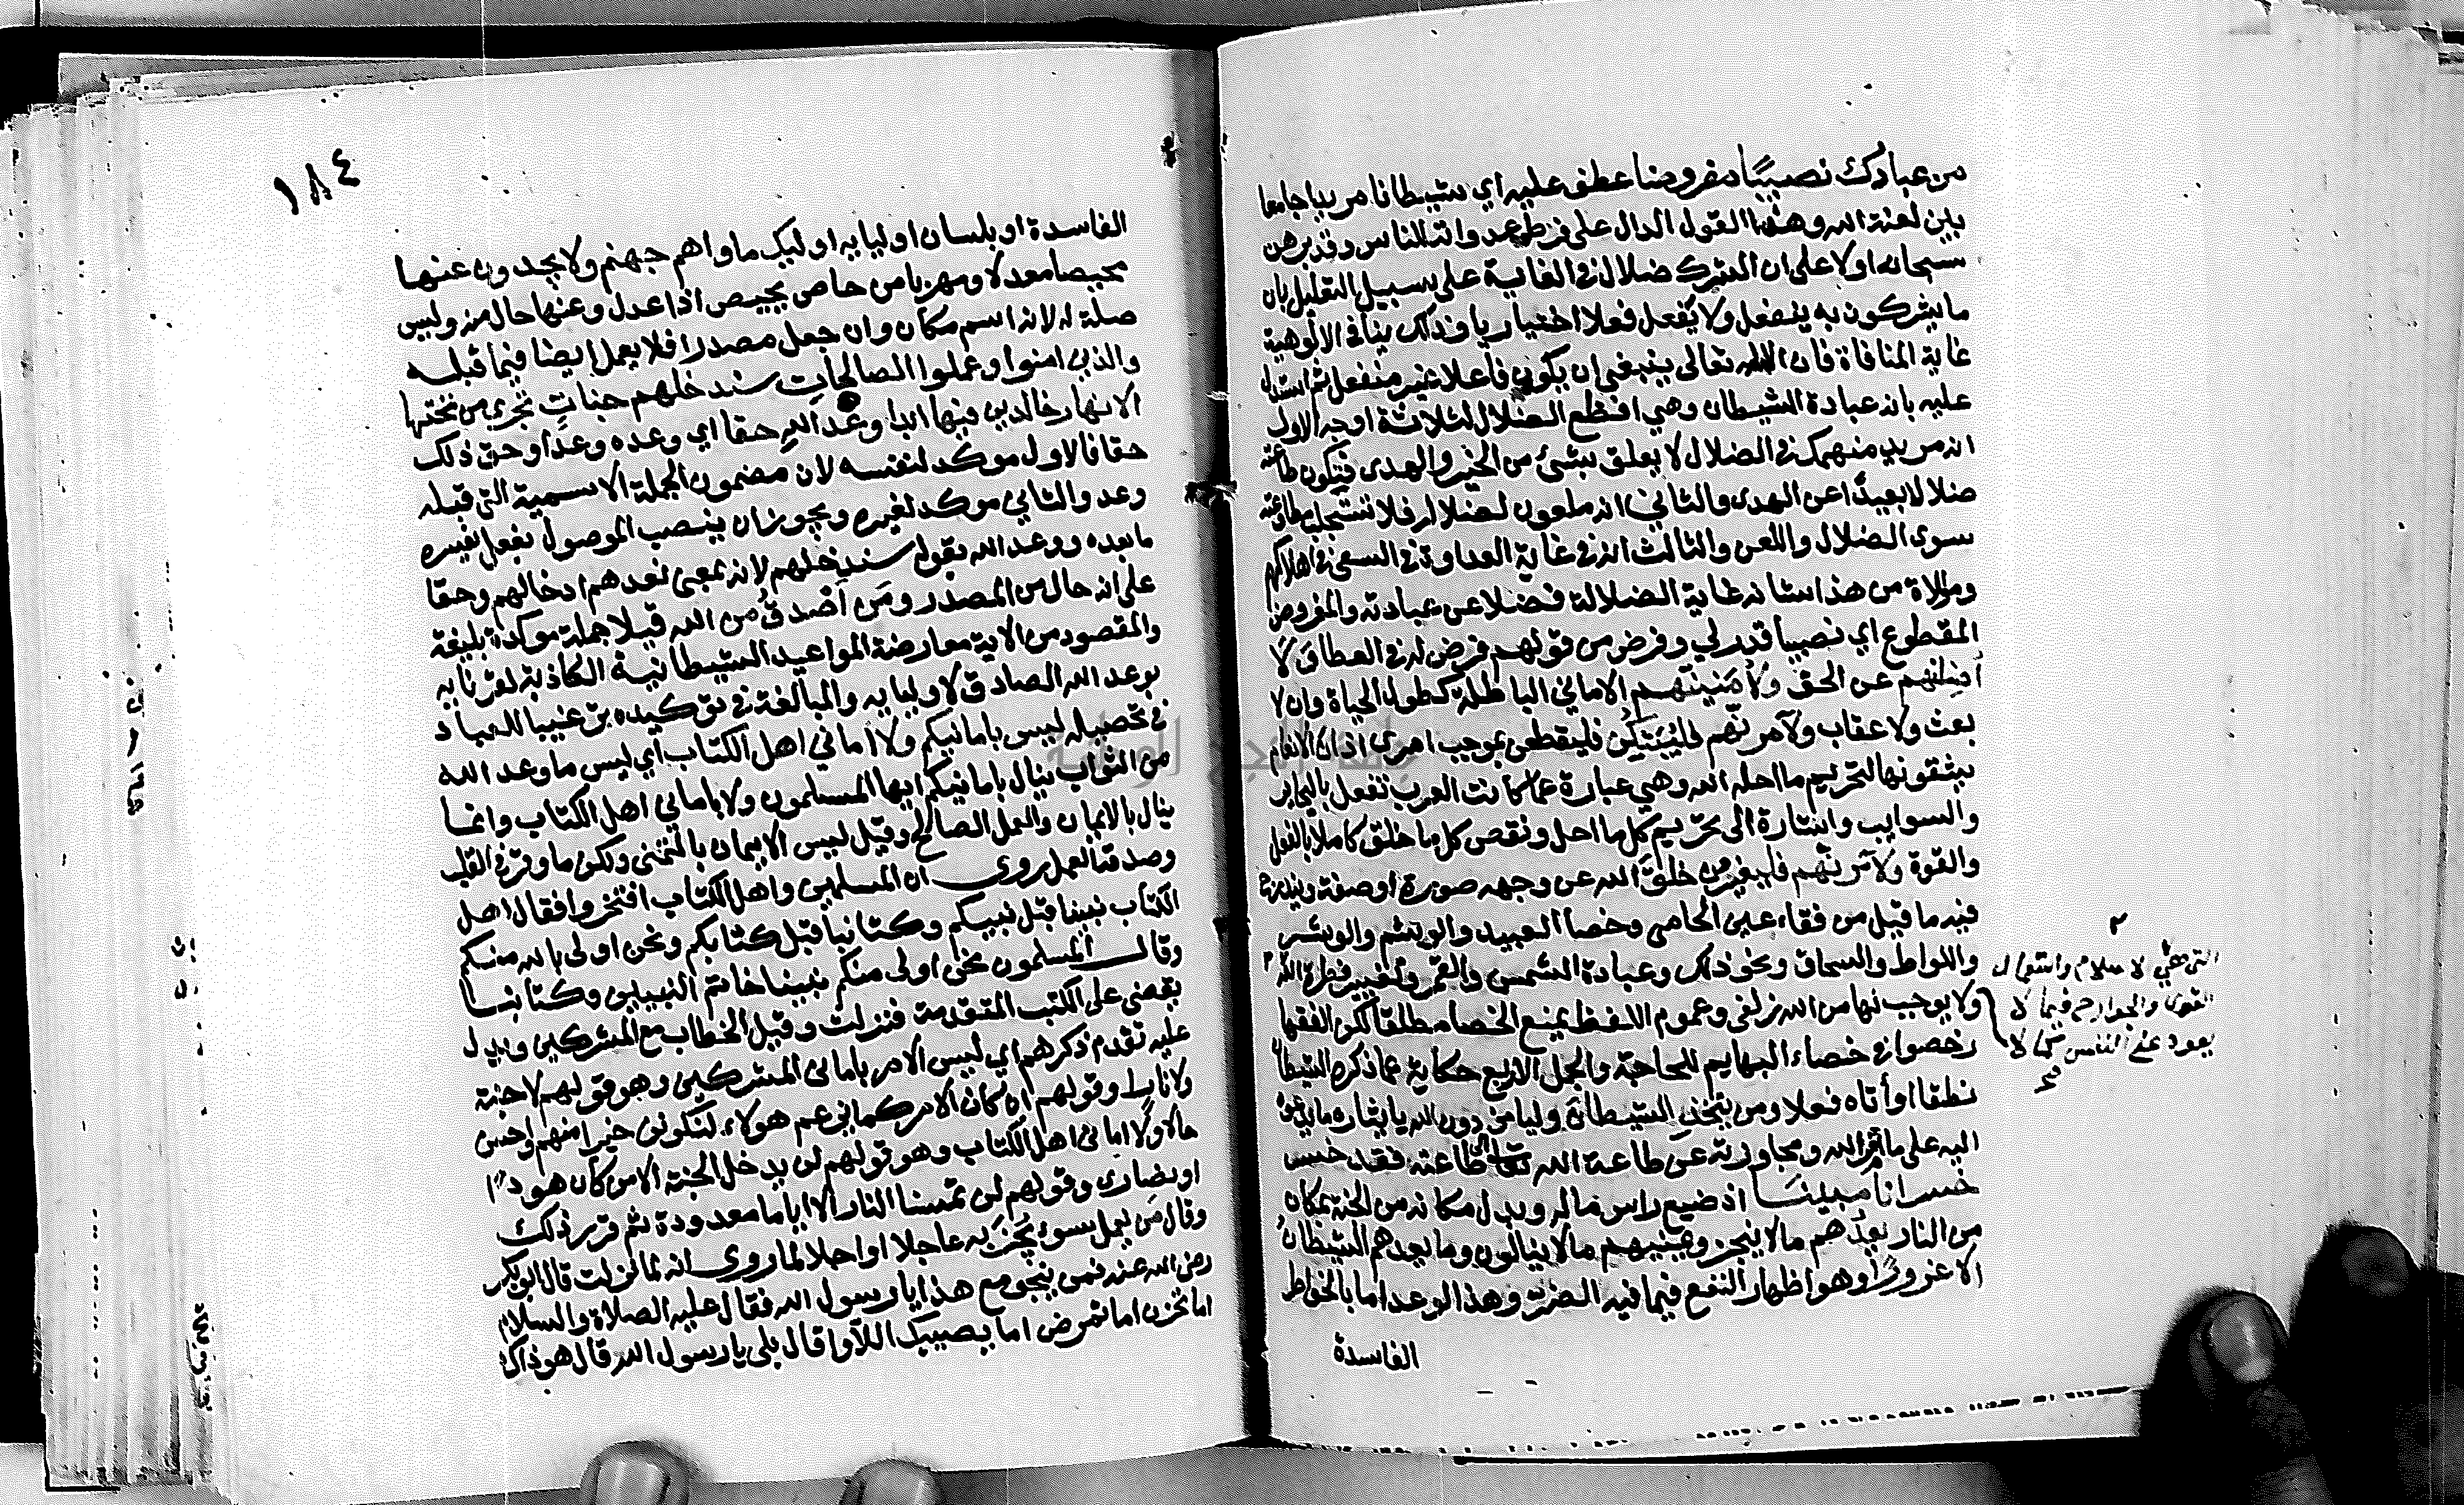 من عبادك نصيبا مفروضا عطف عليه اي شيطانا مريدا جامعا
بين لعنة الله وهذا القول الدال على فرط عداوته للناس وقد برهن
سبحانه اولا على ان الشرك ضلال في الغاية على سبيل التعليل بان
ما يشركون به ينفعل ولا يفعل فعلا اختياريا وذلك ينافي الالوهية
غاية المنافاة فان الاله تعالى ينبغي ان يكون فاعلا غير منفعل ثم استدل
عليه بانه عبادة الشيطان وهي افظع الضلال لثلاثة اوجه الاول
انه مريد منهمك في الضلال لا يعلق بشئ من الخير والهدى فتكون طاعته
ضلالا بعيدا عن الهدى والثاني انه ملعون لضلاله فلا تستجلب مطاوعته
سوى الضلال واللعن والثالث انه في غاية العداوة في السعي في اهلاكهم
وموالاة من هذا شانه غاية الضلالة فضلا عن عبادته والمفروض
المقطوع اي نصيبا قدر لي وفرض من قولهم فرض له في العطا ولا
أضلنهم عن الحق ولأمنينهم الاماني الباطلة كطول الحياة وان لا
بعث ولا عقاب ولآمرنهم فليبتكن فليقطعن بموجب امري اذان الانعام
يشقونها لتحريم ما احله الله وهي عبارة عما كانت العرب تفعل بالبحاير
والسوايب واشارة الى تحريم كل ما احل ونقص كل ما خلق كاملا بالفعل
والقوة ولآمرنهم فليغيرن خلق الله عن وجهه صورة او صفة ويندرج
فيه ما قيل من فقاء عين الحامي وخصا العبيد والوشم والوشر
واللواط والسحاق ونحو ذلك وعبادة الشمس والقمر وتغيير فطرة الله ٢
ولا يوجب لها من الله زلفى وعموم اللفظ يمنع الخصا مطلقا لكن الفقها
رخصوا في خصاء البهايم للحاجة والجمل الاربع حكاية عما ذكره الشيطان
نطقا او أتاه فعلا ومن يتخذ الشيطان وليا من دون الله بايثاره ما يدعوه
اليه على ما امر الله ومجاوزته عن طاعة الله تعالى طاعته فقد خسر
خسرانا مبينا اذ ضيع راس ماله وبدل مكانه من الجنة بمكان
من النار يعدهم ما لا ينجز ويمنيهم ما لا ينالون وما يعدهم الشيطان
الا غرورا وهو اظهار النفع فيما فيه الضرر وهذا الوعد اما بالخواطر
الفاسدة
٢
التي هي الاسلام واستعمال
القوى والجوارح فيما لا
يعود على النفس كمالا
صح
١٨٤
الفاسدة او بلسان اوليايه اوليك ماواهم جهنم ولا يجدون عنها
محيصا معدلا ومهربا من حاص يحيص اذا عدل وعنها حال منه وليس
صلة له لانه اسم مكان وان جعل مصدرا فلا يعمل ايضا فيما قبله
والذين امنوا وعملوا الصالحات سندخلهم جنات تجري من تحتها
الانهار خالدين فيها ابدا وعد الله حقا اي وعده وعدا وحق ذلك
حقا فالاول موكد لنفسه لان مضمون الجملة الاسمية التي قبله
وعد والثاني موكد لغيره ويجوز ان ينصب الموصول بفعل يفسره
ما بعده ووعد الله بقوله سندخلهم لانه بمعنى نعدهم ادخالهم وحقا
على انه حال من المصدر ومن اصدق من الله قيلا جملة موكدة بليغة
والمقصود من الاية معارضة المواعيد الشيطانية الكاذبة لقرنايه
بوعد الله الصادق لاوليايه والمبالغة في توكيده ترغيبا للعباد
في تحصيله ليس بامانيكم ولا اماني اهل الكتاب اي ليس ما وعد الله
من الثواب ينال بامانيكم ايها المسلمون ولا باماني اهل الكتاب وانما
ينال بالايمان والعمل الصالح وقيل ليس الايمان بالتمني ولكن ما وقر في القلب
وصدقه العمل روي ان المسلمين واهل الكتاب افتخروا فقال اهل
الكتاب نبينا قبل نبيكم وكتابنا قبل كتابكم ونحن اولى بالله منكم
وقال المسلمون نحن اولى منكم نبينا خاتم النبيين وكتابنا
يقضي على الكتب المتقدمة فنزلت وقيل الخطاب مع المشركين ويدل
عليه تقدم ذكرهم اي ليس الامر باماني المشركين وهو قولهم لا جنة
ولا نار وقولهم ان كان الامر كما يزعم هولاء لنكونن خيرا منهم واحسن
حالا ولا اماني اهل الكتاب وهو قولهم لن يدخل الجنة الا من كان هودا
او نصارى وقولهم لن تمسنا النار الا اياما معدودة ثم قرر ذلك
وقال من يعمل سوءا يجز به عاجلا او اجلا لما روي انه لما نزلت قال ابو بكر
رضي الله عنه فمن ينجو مع هذا يا رسول الله فقال عليه الصلاة والسلام
اما تحزن اما تمرض اما يصيبك اللاوا قال بلى يا رسول الله قال هو ذاك